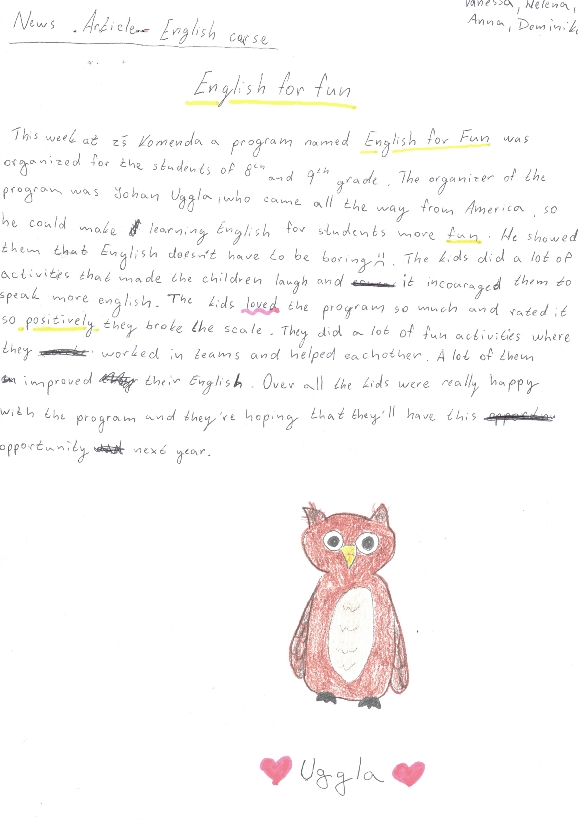 Vanessa, Helena,
Anna, Dominik
News Article - English corse
English for fun
This week at zš Komenda a program named English for Fun was
organized for the students of 8th and 9th grade. The organizer of the
program was Johan Uggla, who came all the way from America, so
he could make learning English for students more fun. He showed
them that English doesn't have to be boring. The kids did a lot of
activities that made the children laugh and it incouraged them to
speak more english. The kids loved the program so much and rated it
so positively they broke the scale. They did a lot of fun activities where
they worked in teams and helped eachother. A lot of them
improved their English. Over all the kids were really happy
with the program and they're hoping that they'll have this
opportunity next year.
Uggla